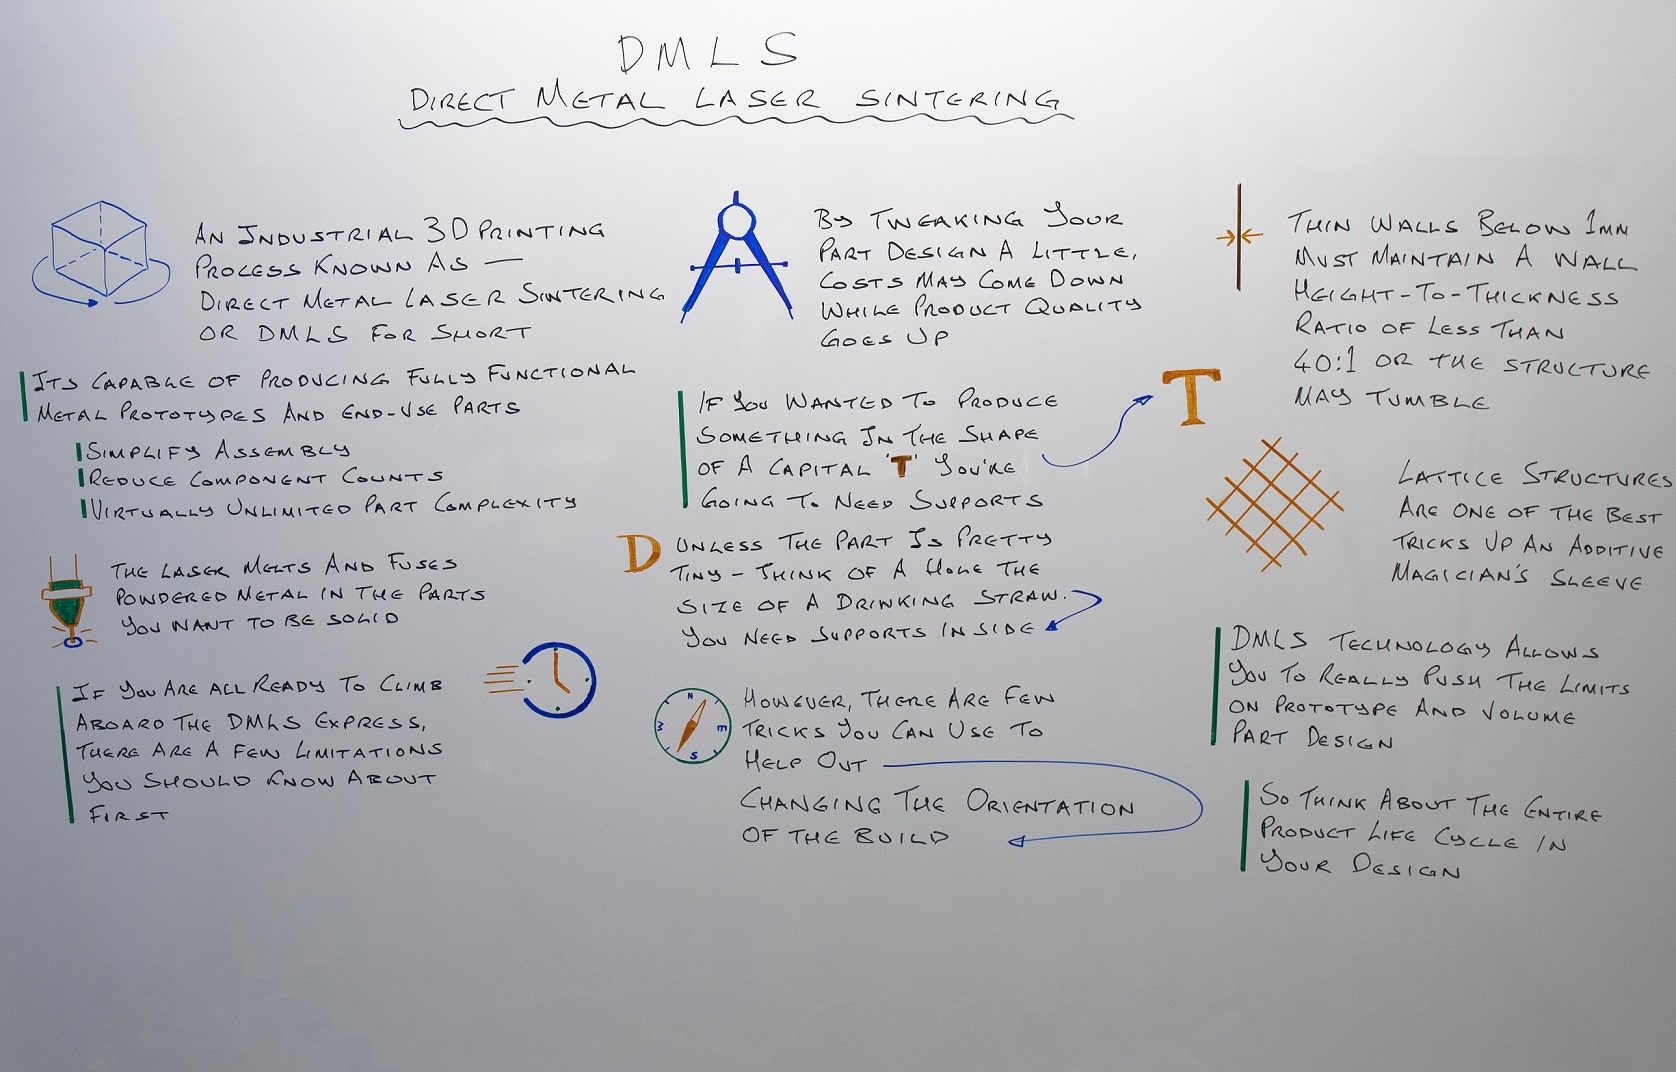 DMLS
DIRECT METAL LASER SINTERING
AN INDUSTRIAL 3D PRINTING
PROCESS KNOWN AS —
DIRECT METAL LASER SINTERING
OR DMLS FOR SHORT
ITS CAPABLE OF PRODUCING FULLY FUNCTIONAL
METAL PROTOTYPES AND END-USE PARTS
SIMPLIFY ASSEMBLY
REDUCE COMPONENT COUNTS
VIRTUALLY UNLIMITED PART COMPLEXITY
THE LASER MELTS AND FUSES
POWDERED METAL IN THE PARTS
YOU WANT TO BE SOLID
IF YOU ARE ALL READY TO CLIMB
ABOARD THE DMLS EXPRESS,
THERE ARE A FEW LIMITATIONS
YOU SHOULD KNOW ABOUT
FIRST
BY TWEAKING YOUR
PART DESIGN A LITTLE,
COSTS MAY COME DOWN
WHILE PRODUCT QUALITY
GOES UP
IF YOU WANTED TO PRODUCE
SOMETHING IN THE SHAPE
OF A CAPITAL 'T' YOU'RE
GOING TO NEED SUPPORTS
T
D
UNLESS THE PART IS PRETTY
TINY - THINK OF A HOLE THE
SIZE OF A DRINKING STRAW.
YOU NEED SUPPORTS INSIDE
N
W E
S
HOWEVER, THERE ARE FEW
TRICKS YOU CAN USE TO
HELP OUT
CHANGING THE ORIENTATION
OF THE BUILD
THIN WALLS BELOW 1MM
MUST MAINTAIN A WALL
HEIGHT-TO-THICKNESS
RATIO OF LESS THAN
40:1 OR THE STRUCTURE
MAY TUMBLE
LATTICE STRUCTURES
ARE ONE OF THE BEST
TRICKS UP AN ADDITIVE
MAGICIAN'S SLEEVE
DMLS TECHNOLOGY ALLOWS
YOU TO REALLY PUSH THE LIMITS
ON PROTOTYPE AND VOLUME
PART DESIGN
SO THINK ABOUT THE ENTIRE
PRODUCT LIFE CYCLE IN
YOUR DESIGN